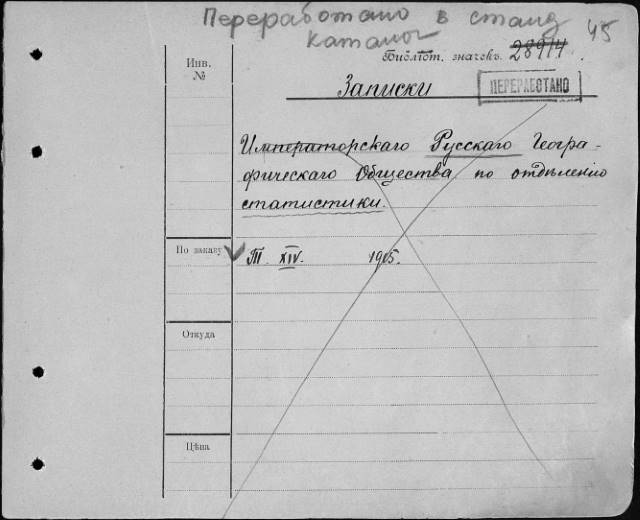 Переработано в станд
каталог
45
Библіот. значекъ 28914
Инв.
№
Записки
ПЕРЕРАБОТАНО
Императорскаго Русскаго Геогра-
фическаго Общества по отдѣленію
статистики.
По заказу
Т. XIV. 1915.
Откуда
Цѣна